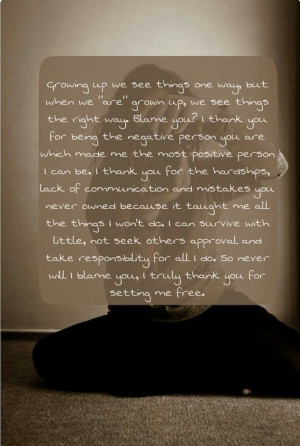 Growing up we see things one way, but
when we "are" grown up, we see things
the right way. Blame you? I thank you
for being the negative person you are
which made me the most positive person
I can be. I thank you for the hardships,
lack of communication and mistakes you
never owned because it taught me all
the things I won't do. I can survive with
little, not seek others approval and
take responsibility for all I do. So never
will I blame you, I truly thank you for
setting me free.